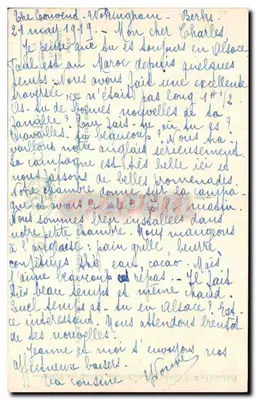 The Convent. Wokingham. Berks
21 may 1949. - Mon cher Charles
Je pense que tu es toujours en Alsace
est au Maroc depuis quelques
temps. Nous avons fait une excellente
traversée (ce n'était pas long 1h 1/2
As-tu de bonnes nouvelles de ta
famille? Que fais-tu, où tu es?
Travailles-tu beaucoup? Nous tra-
vaillons notre anglais sérieusement.
La campagne est très belle ici et
nous faisons de belles promenades.
Notre chambre donne sur la campa-
gne
Nous sommes bien installées dans
notre petite chambre. Nous mangeons
à l'anglaise: pain grillé, beurre,
confitures, thé, eau, cacao. Mais
j'aime beaucoup repas. - Il fait
très beau temps et même chaud.
Quel temps as-tu en Alsace? Est-
ce intéressant. Nous attendons bientôt
de tes nouvelles.
Jeanne et moi t'envoyons nos
affectueux baisers.
Ta cousine Yvonne